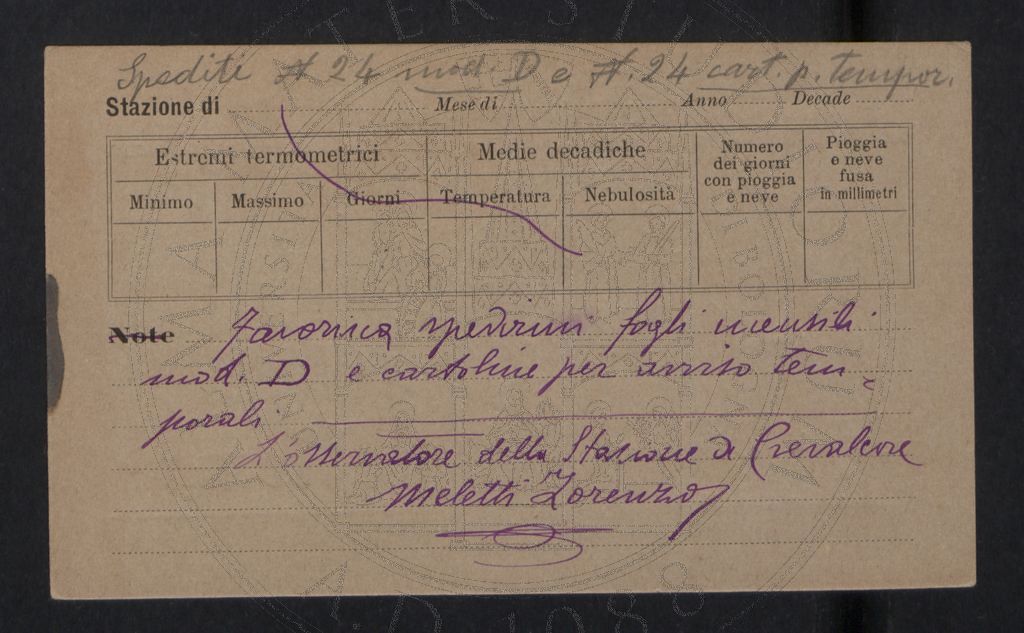 Spedite N. 24 mod. D e N. 24 cart. p. tempor.
Stazione di Mese di Anno Decade
Estremi termometrici Medie decadiche Numero dei giorni con pioggia e neve Pioggia e neve fusa in millimetri
Minimo Massimo Giorni Temperatura Nebulosità
Note Favorisca spedirmi fogli mensili
mod. D e cartoline per avviso tem-
porali.
L'osservatore della Stazione di Crevalcore
Meletti Lorenzo
A.D. 1088